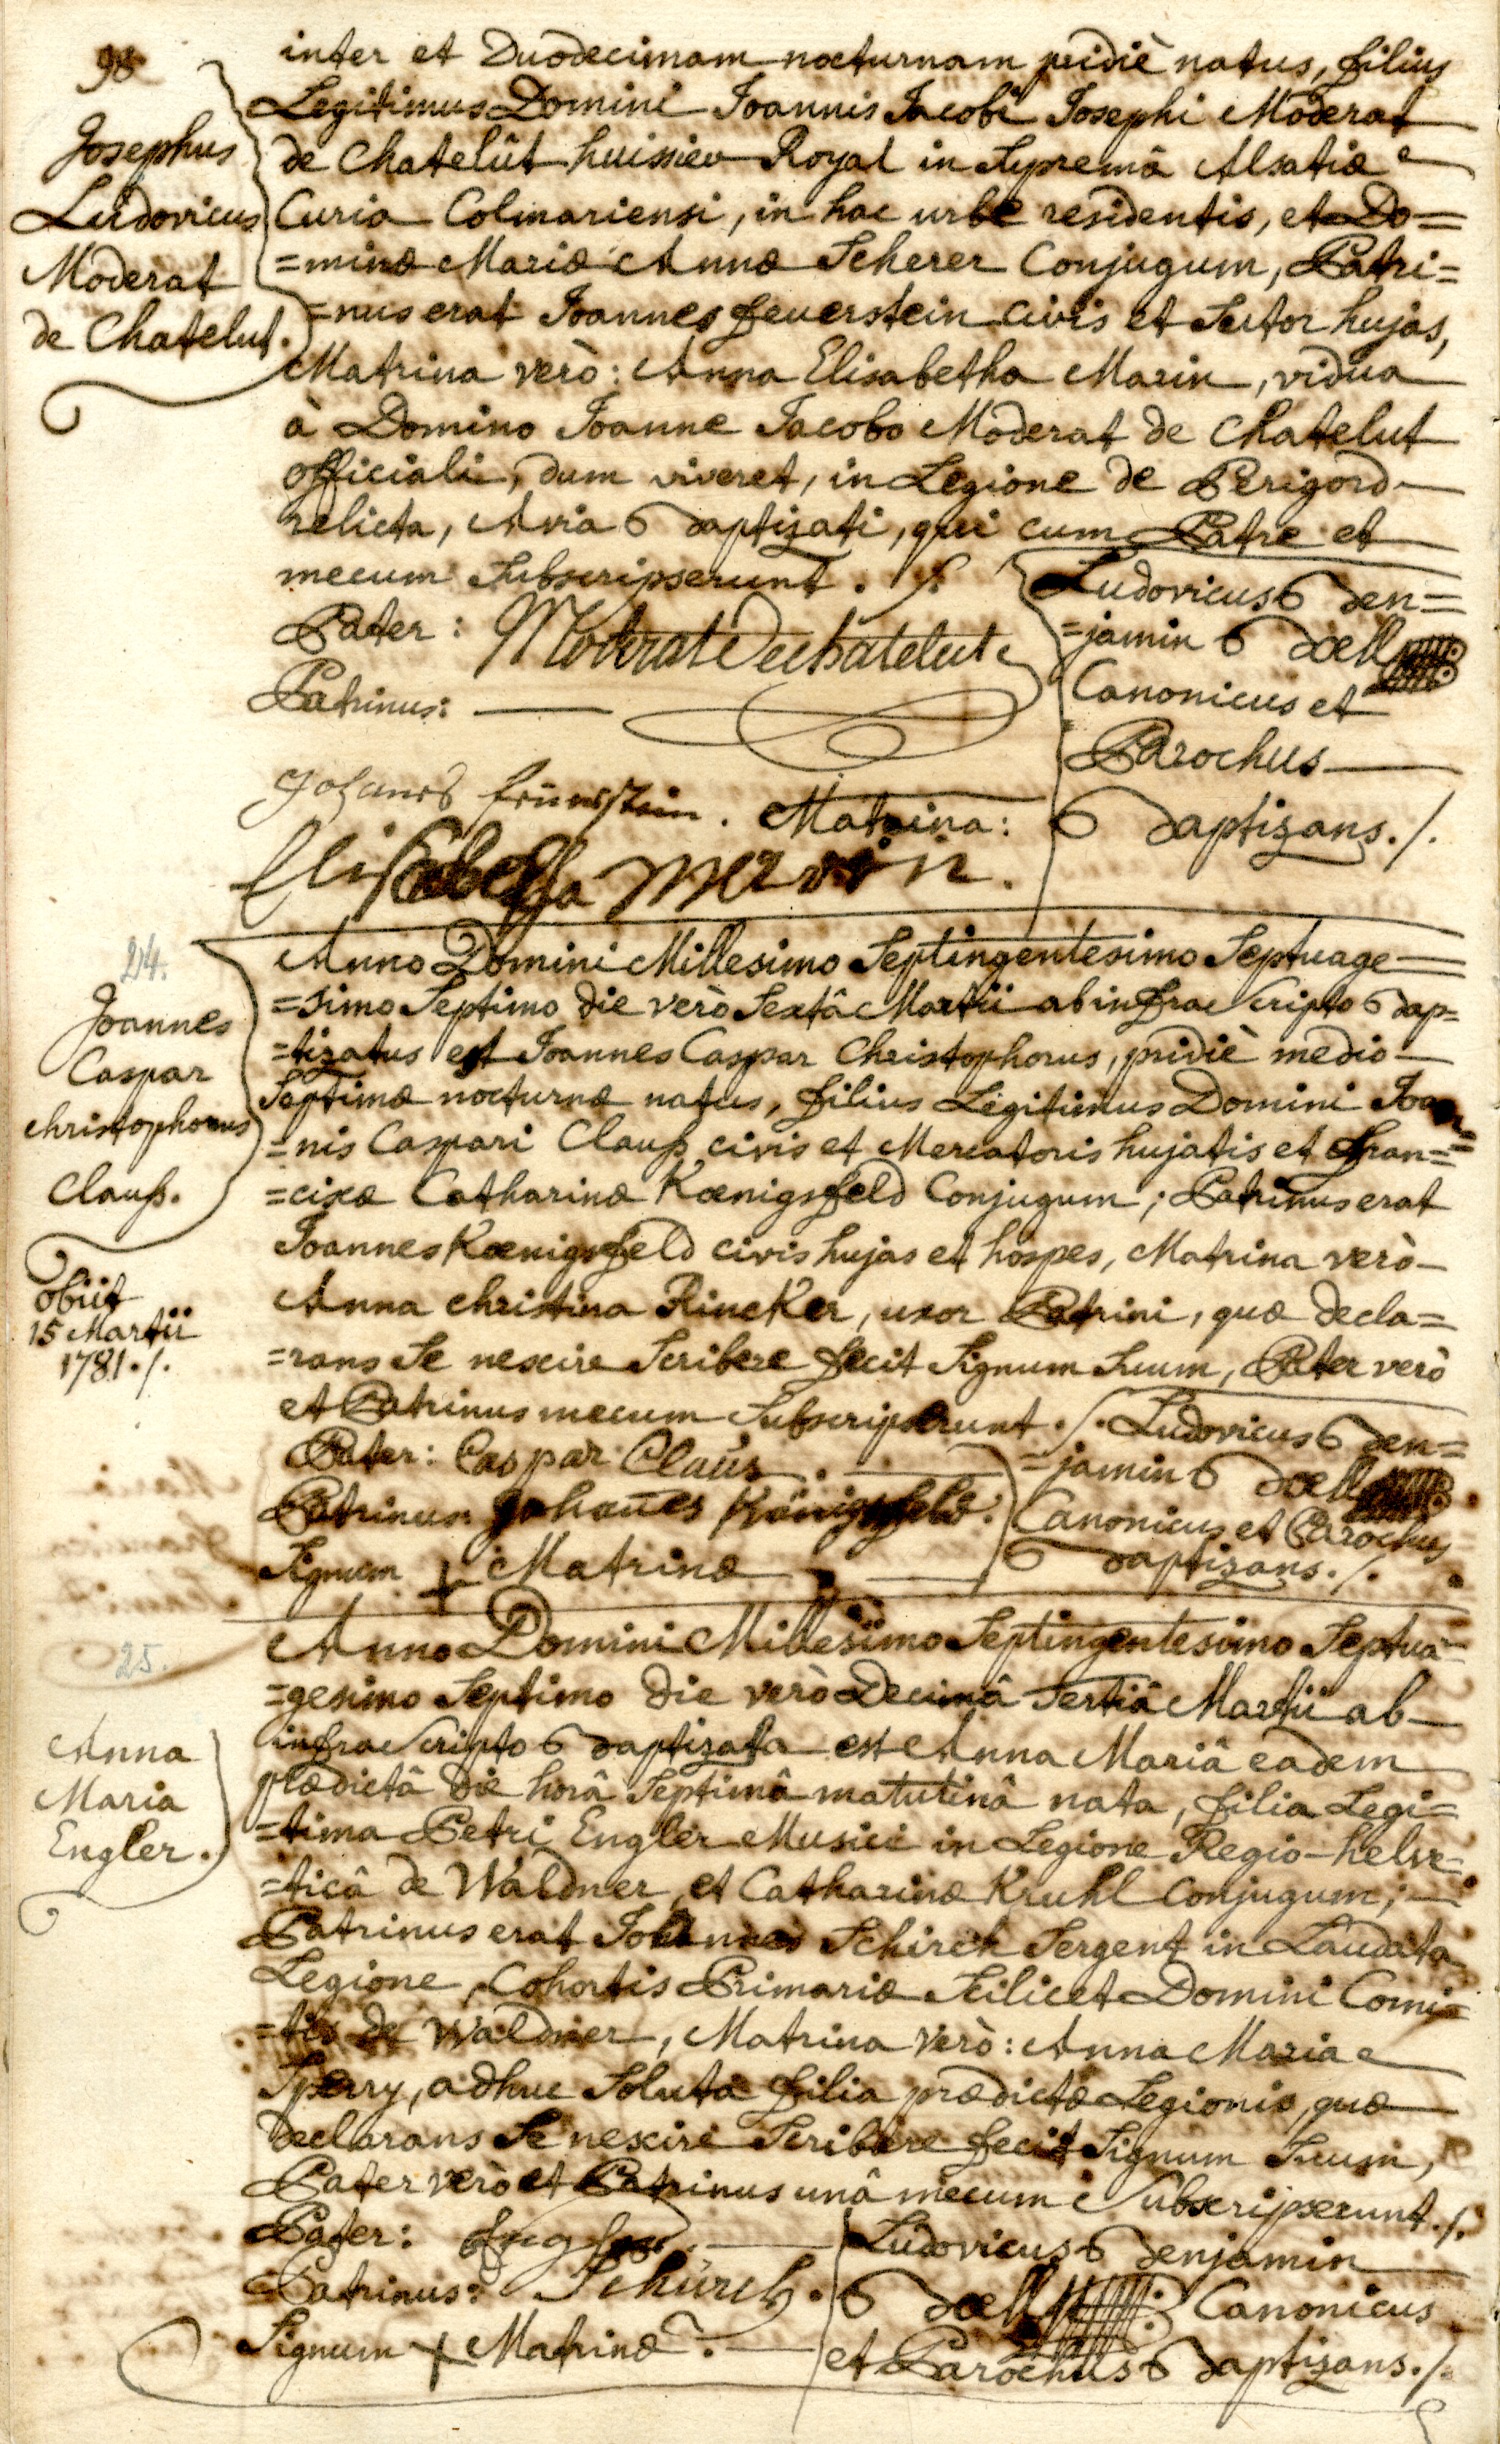 98
inter et Duodecimam nocturnam pridiè natus, filius
Legitimus Domini Joannis Jacobi Josephi Moderat
de Chatelût huissier Royal in Supremâ Alsatiæ
Curia Colmariensi, in hac urbe residentis, et Do=
=minæ Mariæ Annæ Scherer Conjugum, Patri=
=nus erat Joannes feuerstein civis et Sutor hujas,
Matrina verò: Anna Elisabetha Marin, vidua
à Domino Joanne Jacobo Moderat de Chatelut
officiali, dum viveret, in Legione de Perigord
relicta, Avia Baptizati, qui cum Patre et
mecum Subscripserunt. /.
Josephus
Ludovicus
Moderat
de Chatelut.
Pater: Moderat Dechatelut
Patrinus:
Johanes feürstein. Matrina:
Elisabetha marin.
Ludovicus Ben=
=jamin Bœll
Canonicus et
Parochus
Baptizans./.
24.
Joannes
Caspar
christophorus
Clauß.
obiit
15 Martii
1781./.
Anno Domini Millesimo Septingentesimo Septuage=
=simo Septimo die verò Sextâ Martii ab infra Scripto Bap=
=tizatus est Joannes Caspar Christophorus, pridiè medio
Septimæ nocturnæ natus, filius Legitimus Domini Joan=
=nis Caspari Clauß civis et Mercatoris hujatis et Fran=
=ciscæ Catharinæ Kœnigsfeld Conjugum; Patrinus erat
Joannes Kœnigsfeld civis hujas et hospes, Matrina verò
Anna christina Rincker, uxor Patrini, quæ decla=
=rans Se nescire Scribere fecit Signum Suum, Pater verò
et Patrinus mecum Subscripserunt./.
Pater: Caspar Claüs.
Patrinus: Johañes Königsfeld.
Signum + Matrinæ
Ludovicus Ben=
=jamin Bœll
Canonicus et Parochus
Baptizans./.
25.
Anna
Maria
Engler.
Anno Domini Millesimo Septingentesimo Septua=
=gesimo Septimo die verò Decimâ Tertiâ Martii ab
infra Scripto Baptizata est Anna Mariâ eadem
prædictâ die horâ Septimâ matutinâ nata, filia Legi=
=tima Petri Engler Musici in Legione Regio-helve=
=ticâ de Waldner, et Catharinæ Kruhl Conjugum;
Patrinus erat Johannes Schirch Sergent in Laudata
Legione, Cohortis Primariæ Scilicet Domini Comi=
=tis de Waldner, Matrina verò: Anna Maria
Sperry, adhuc Soluta filia prædictæ Legionis, quæ
declarans Se nescire Scribere fecit Signum Suum,
Pater verò et Patrinus unâ mecum Subscripserunt./.
Pater: Engler.
Patrinus: Schürch.
Signum + Matrinæ.
Ludovicus Benjamin
Bœll Canonicus
et Parochus Baptizans./.